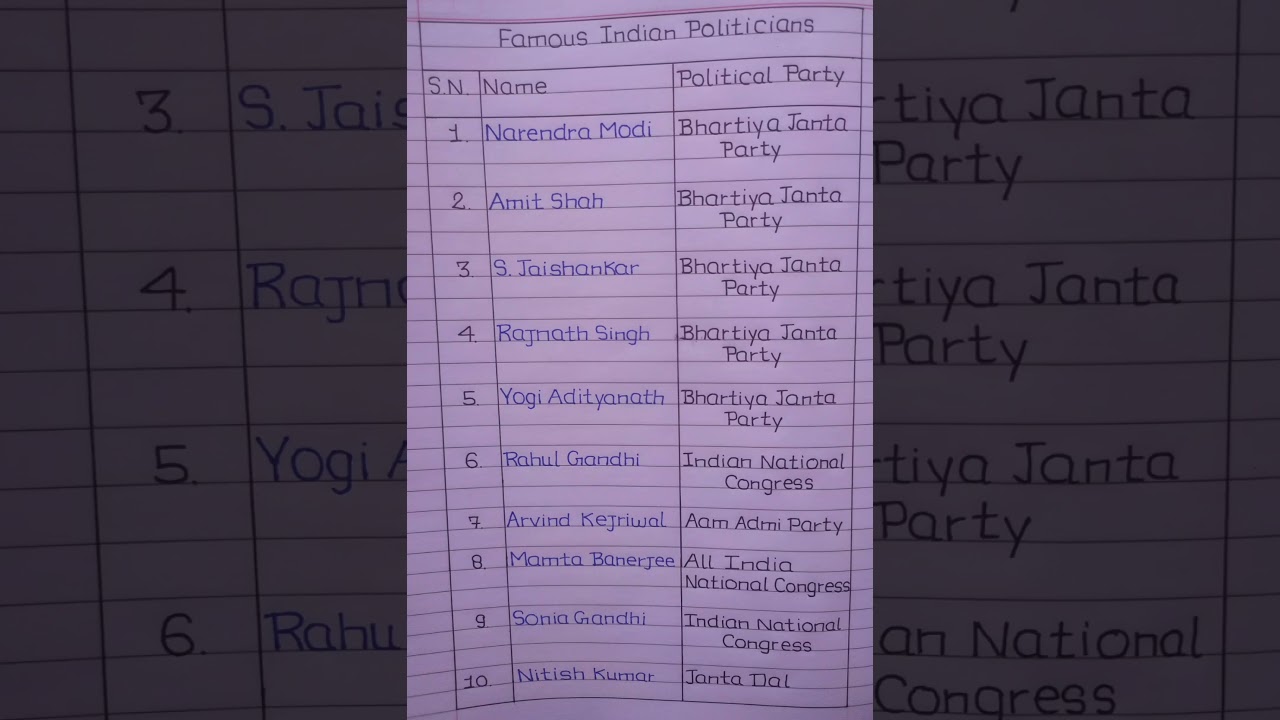 Famous Indian Politicians
S.N. Name Political Party
1. Narendra Modi Bhartiya Janta
Party
2. Amit Shah Bhartiya Janta
Party
3. S. Jaishankar Bhartiya Janta
Party
4. Rajnath Singh Bhartiya Janta
Party
5. Yogi Adityanath Bhartiya Janta
Party
6. Rahul Gandhi Indian National
Congress
7. Arvind Kejriwal Aam Admi Party
8. Mamta Banerjee All India
National Congress
9. Sonia Gandhi Indian National
Congress
10. Nitish Kumar Janta Dal